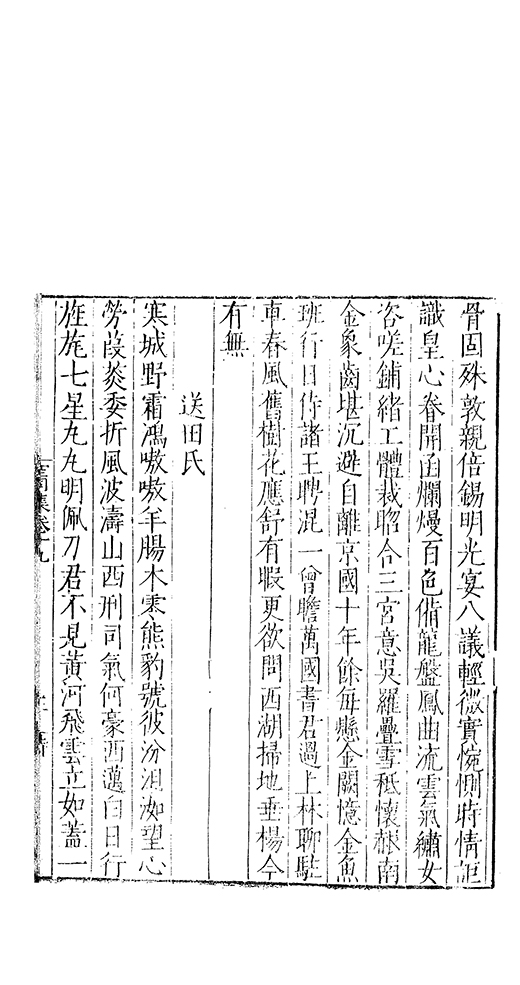 骨固殊敦親倍錫明光宴八議輕微實惋惻時情詎
識皇心眷開函爛熳百色備龍盤鳳曲流雲氣繡女
咨嗟鋪緒工體裁昭合三宮意吳羅疊雪秪懷赧南
金象齒堪沉避自離京國十年餘每懸金闕憶金魚
班行日侍諸王聘混一曾瞻萬國書君過上林聊駐
車春風舊樹花應舒有暇更欲問西湖掃地垂楊今
有無
送田氏
寒城野霜鴻嗷嗷羊腸木寒熊豹號彼汾沮洳望心
勞葭菼委折風波濤山西刑司氣何豪西邁白日行
旌旄七星九九明佩刀君不見黃河飛雲立如蓋一
集卷十九